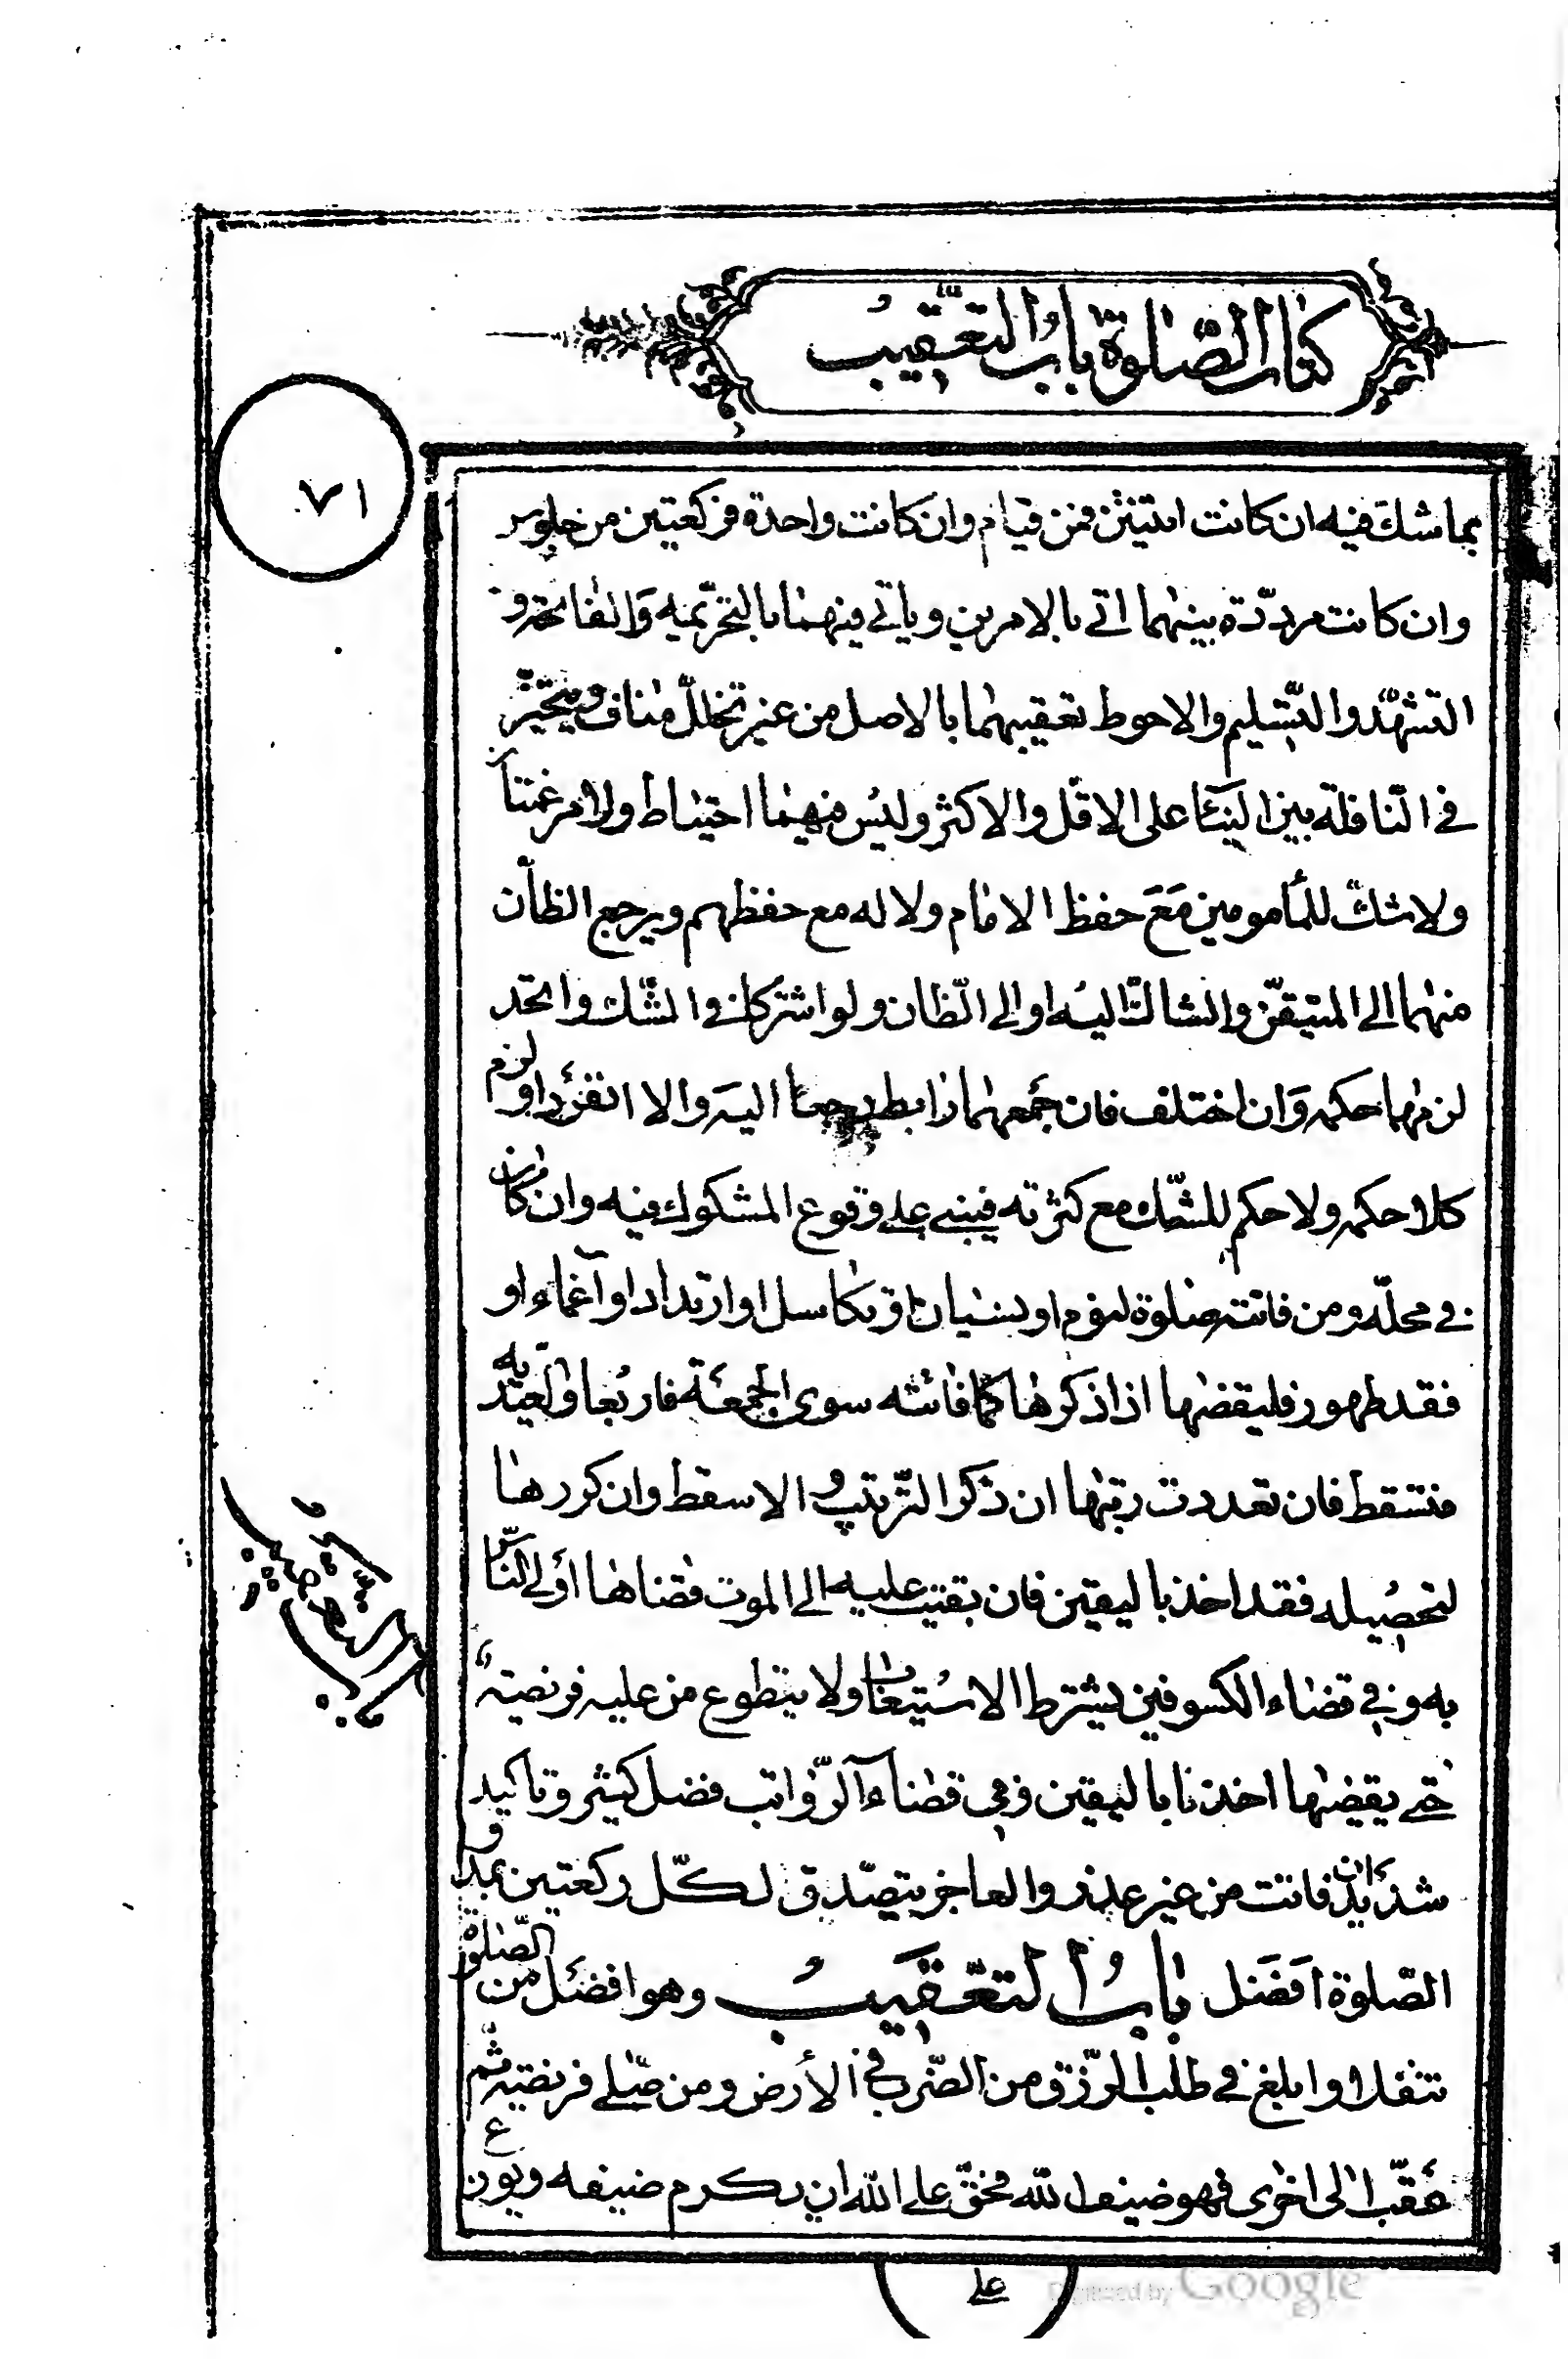 كتاب الصّلوة باب التعقيب
٧١
بما شك فيه ان كانت اثنتين فمن قيام وان كانت واحدة فركعتين من جلوس
وان كانت مردّدة بينهما اتى بالامرين وياتى فيهما بالتحريمه والفاتحة و
التشهّد والتسليم والاحوط تعقيبهما بالاصل من غير تخلّل مناف ويتخيّر
فى النّافلة بين البناء على الاقل والاكثر وليس فيهما احتياط ولا مرغمتان
ولا شكّ للمأمومين مع حفظ الامام ولا له مع حفظهم ويرجع الظانّ
منهما الى المتيقّن والشاك اليه او الى الظّان ولو اشتركا فى الشّك واتحد
لزمهما حكمه وان اختلف فان جمعهما رابط رجعا اليه والا انفردا ولزم
كلا حكمه ولا حكم للشّك مع كثرته فيبنى على وقوع المشكوك فيه وان كان
فى محلّه ومن فاتته صلوة لنوم او نسيان او تكاسل او ارتداد او اغماء او
فقد طهور فليقضها اذا ذكرها كما فاتته سوى الجمعة فاربعا والعيديّه
فتسقط فان تعددت رتبها ان ذكر التّرتيب والا سقط وان كررها
لتحصيله فقد اخذ باليقين فان بقيت عليه الى الموت قضاها اولى النّاس
به وفى قضاء الكسوفين يشترط الاستيعاب ولا يتطوع من عليه فريضة
حتى يقضيها اخذنا باليقين وفى قضاء الرّواتب فضل كثير وتاكيد
شديد ان فاتت من غير عذر والعاجز يتصدّق لكلّ ركعتين بمد و
الصّلوة افضل باب التعقيب وهو افضل من الصّلوة
تنفلا وابلغ فى طلب الرزق من الضّرب فى الأرض ومن صلّى فريضة ثم
عقّب الى اخرى فهو ضيف الله فحقّ على الله ان يكرم ضيفه
باب التعقيب
على
Digitized by Google